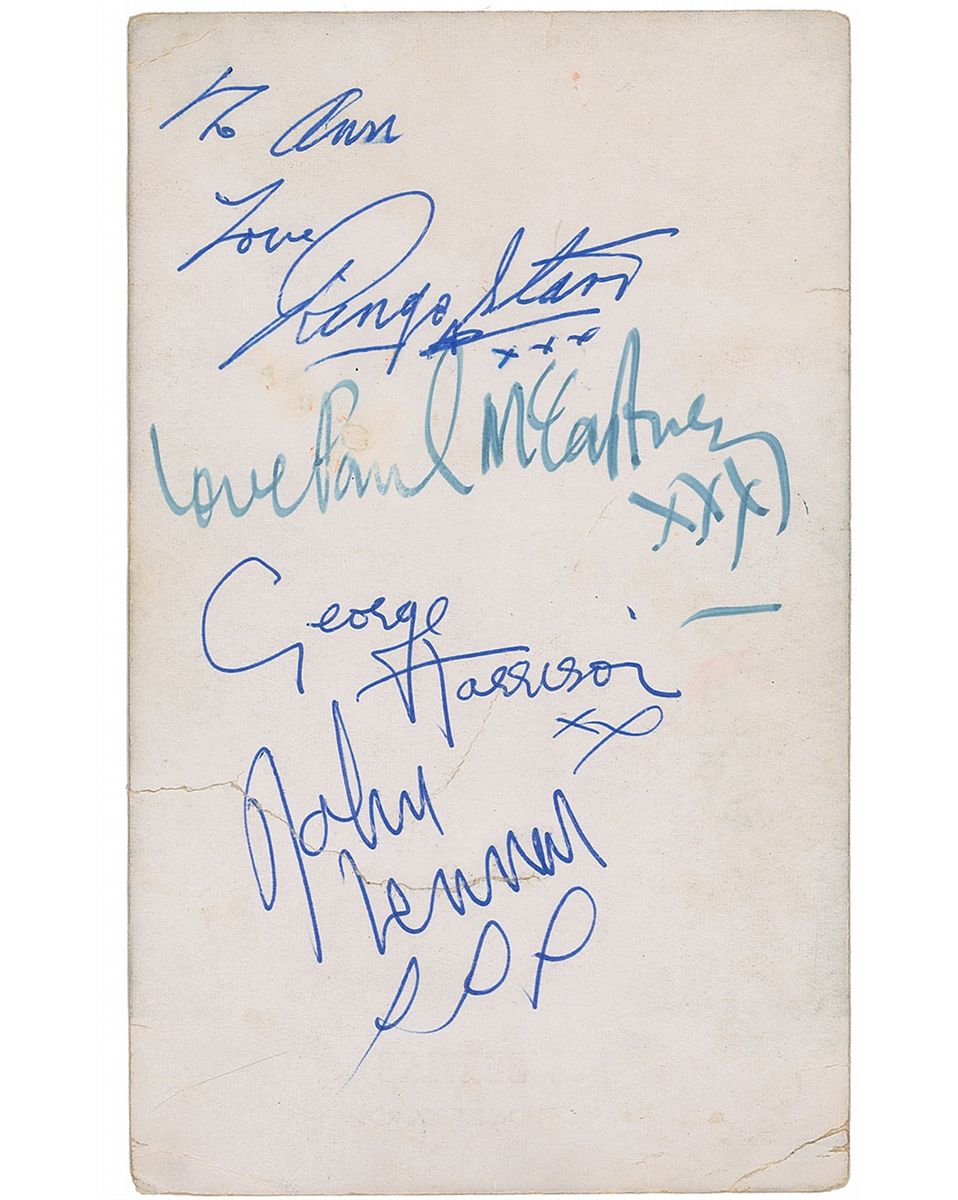 To Ann
Love
Ringo Starr
xxx
love Paul McCartney
XXX
George
Harrison
xx
John
Lennon